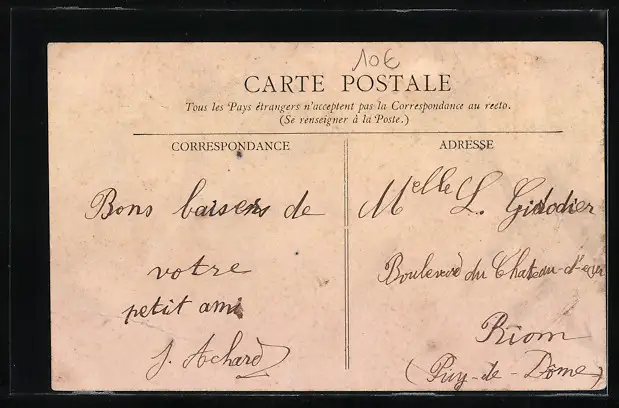 10€
CARTE POSTALE
Tous les Pays étrangers n'acceptent pas la Correspondance au recto.
(Se renseigner à la Poste.)
CORRESPONDANCE
Bons baisers de
votre
petit ami
J. Achard
ADRESSE
Melle L. Gidodier
Boulevard du Chateau-d'eau
Riom
(Puy-de-Dôme)